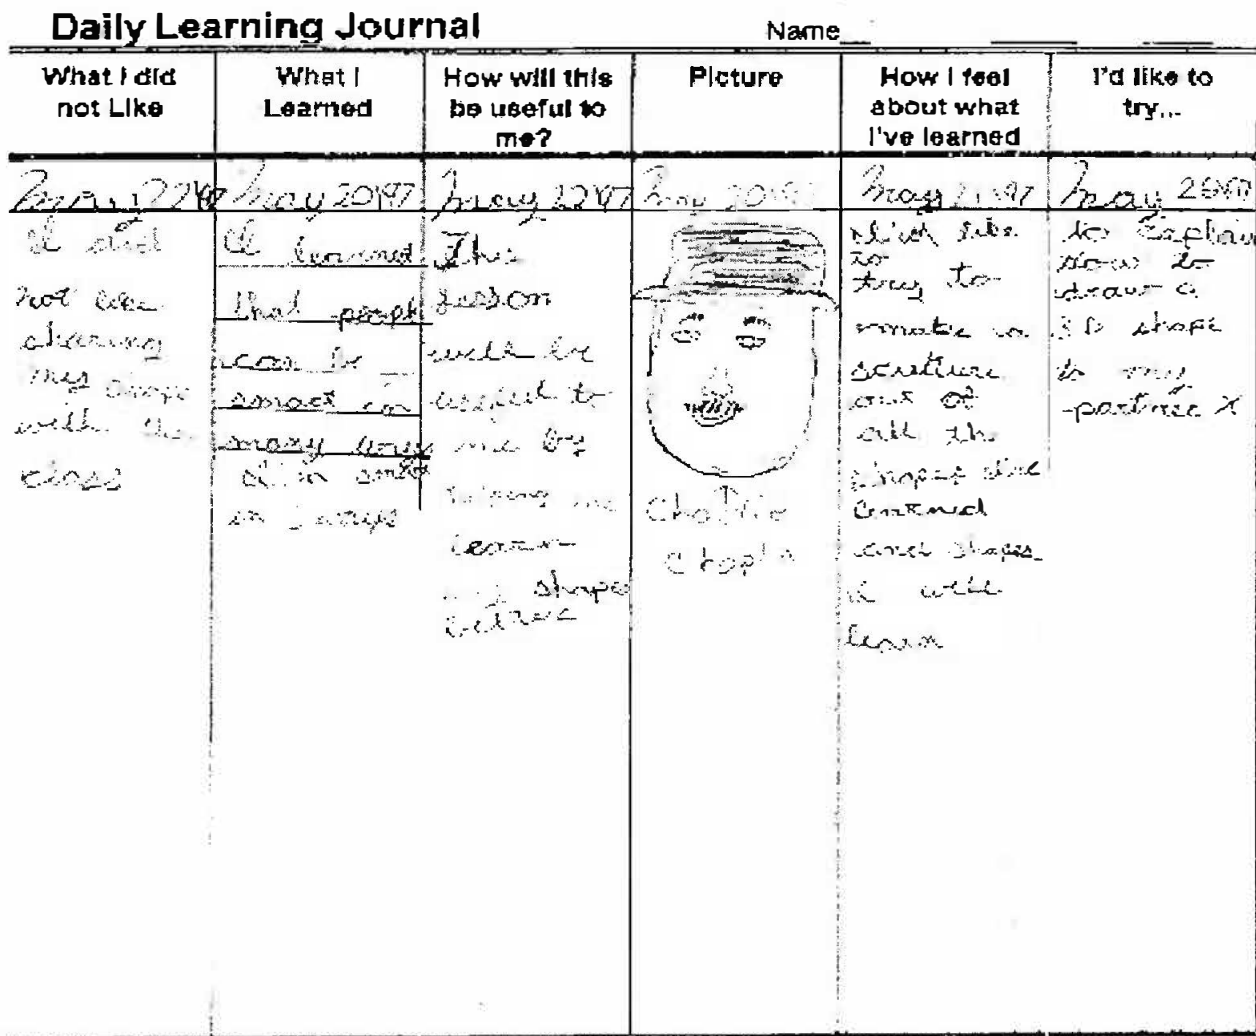 Daily Learning Journal
Name
What I did
not Like
What I
Learned
How will this
be useful to
me?
Picture
How I feel
about what
I've learned
I'd like to
try...
May 22'97
I did
not like
sharing
my shape
with the
class
May 20'97
I learned
that people
can be
smart in
many ways
I'm smart
in
May 22'97
This
lesson
will be
useful to
me by
helping me
learn
my shapes
May 20'97
Charlie
Chaplin
May 21'97
I'd like
to
try to
make a
out of
all the
shapes I've
learned
and shapes
I will
learn
May 26'97
to Explain
how to
draw a
3D shape
to my
partner